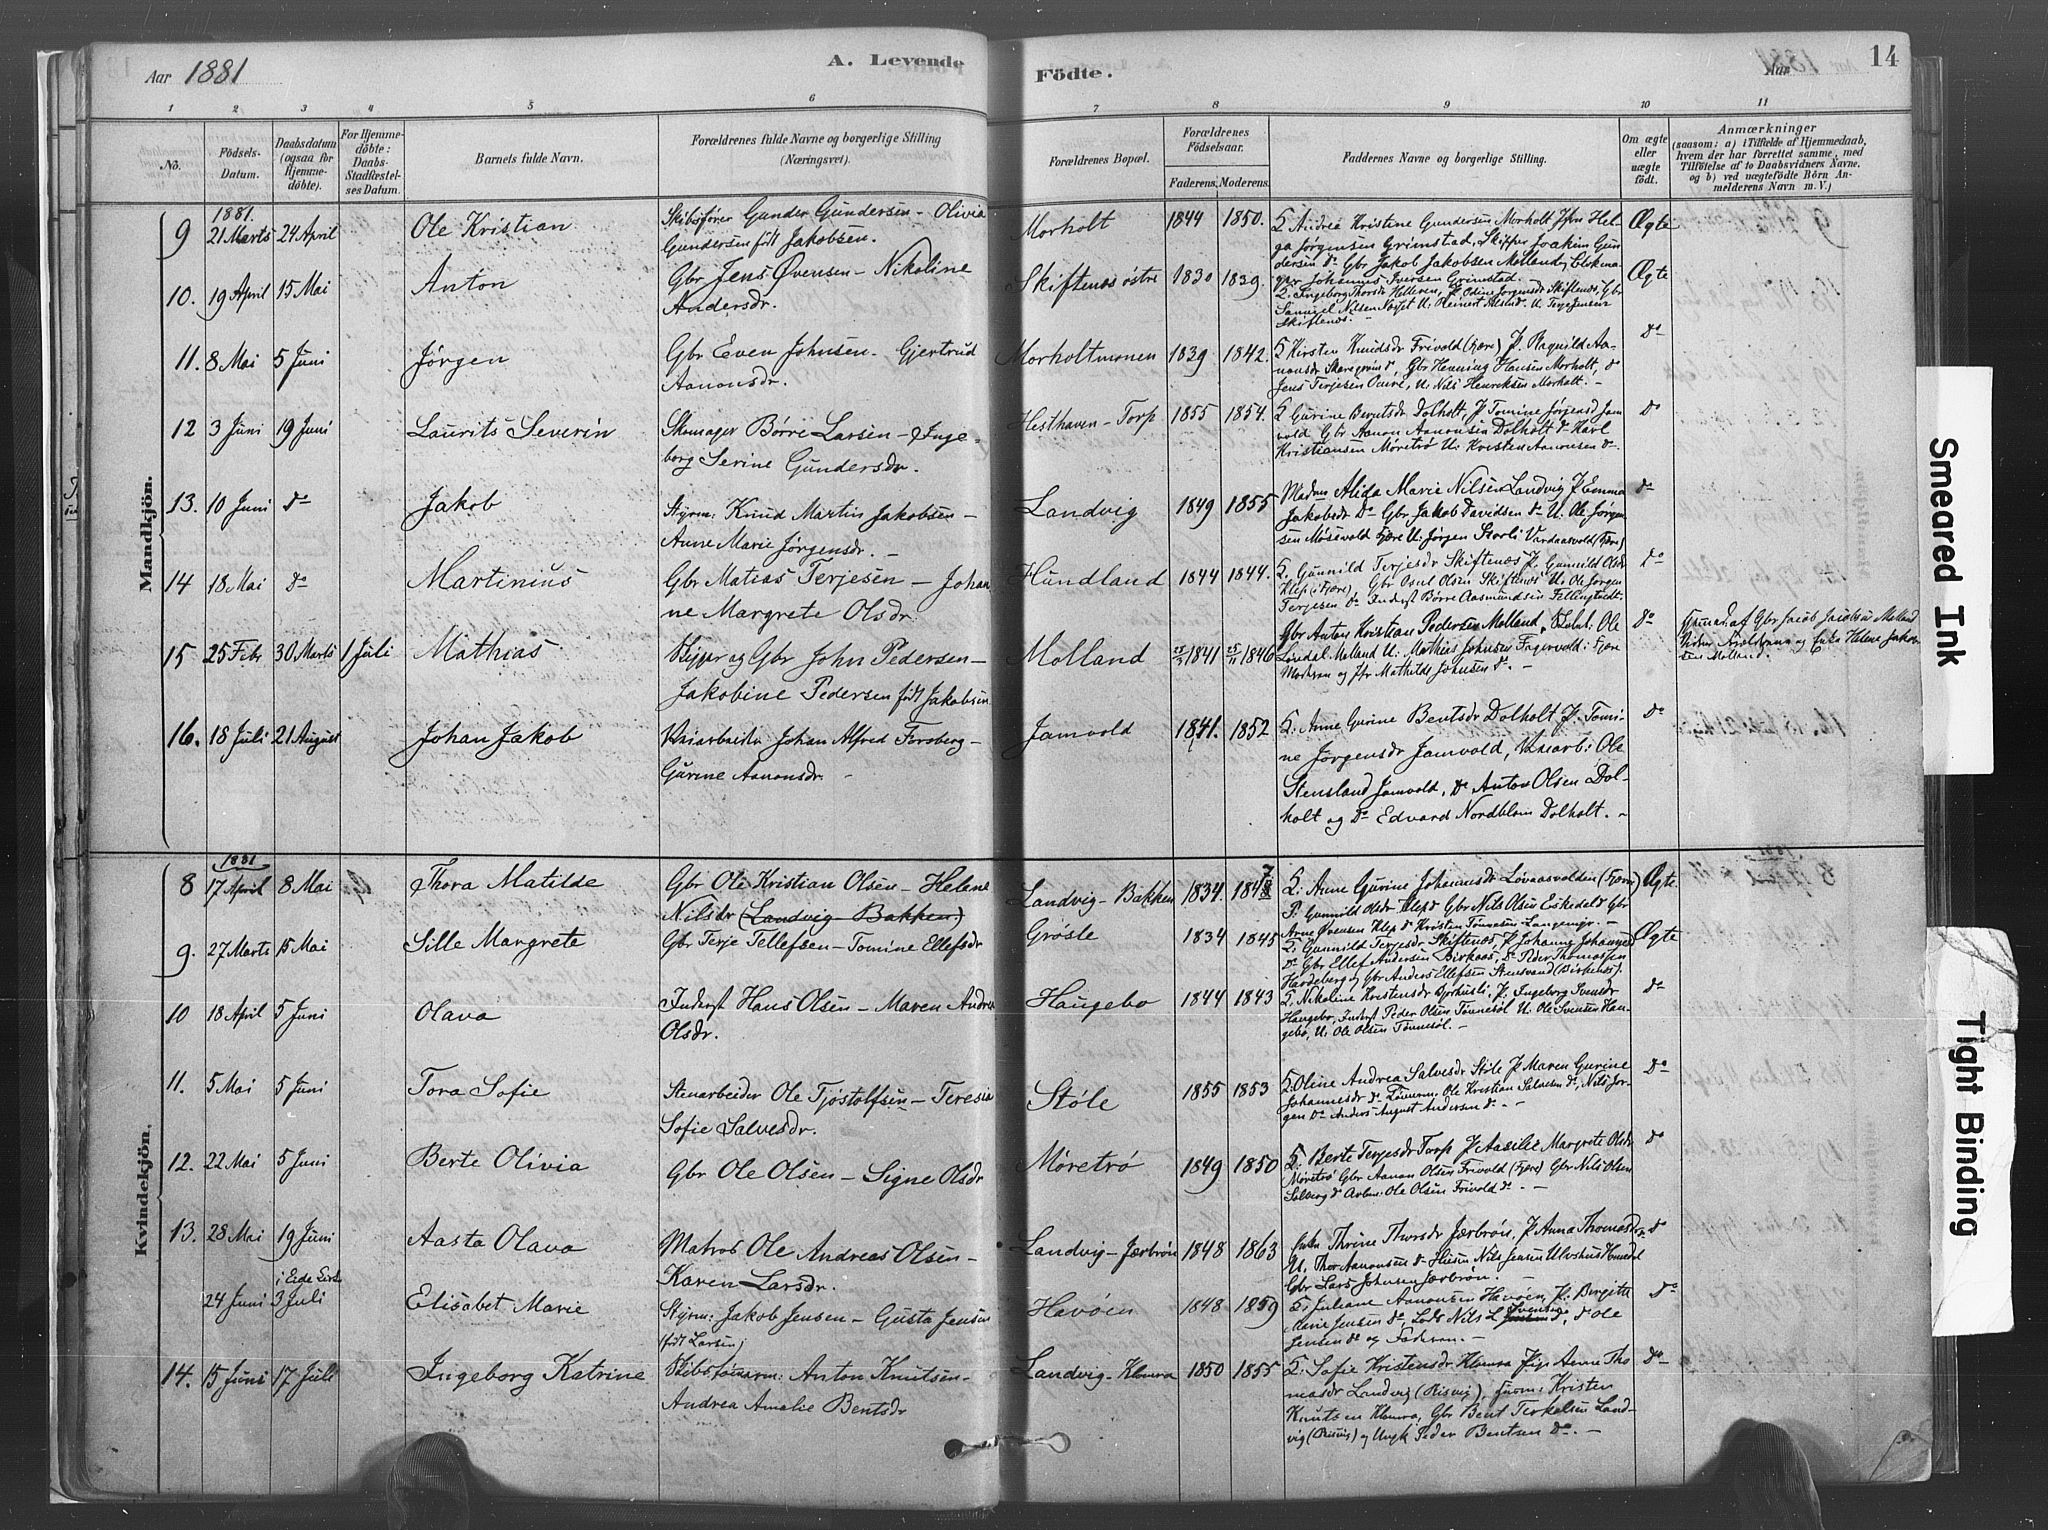 Aar 1881
A. Levende
Födte.
Aar 1881
14
1 2 3 4 5 6 7 8 9 10 11
No.
Födsels-
Datum.
Daabsdatum
(ogsaa for
Hjemme-
döbte).
For Hjemme-
döbte:
Daabs-
Stadfæstel-
ses Datum.
Barnets fulde Navn.
Forældrenes fulde Navne og borgerlige Stilling
(Næringsvei).
Forældrenes Bopæl.
Forældrenes
Födselsaar.
Faderens. Moderens.
Faddernes Navne og borgerlige Stilling.
Om ægte
eller
uægte
født.
Anmærkninger
(saasom: a) i Tilfælde af Hjemmedaab,
hvem der har forrettet samme, med
Tilföielse af to Daabsvidners Navne,
og b) ved uægtefödte Börn An-
melderens Navn m. V.)
Mandkjön.
1881.
9 21 Marts 24 April Ole Kristian
Skibsfører Gunder Gundersen - Olivia
Gundersen født Jakobsen.
Morholt 1844 1850.
Andrea Kristine Gundersen Morholt Jfru Hel-
ga Jørgensen Grimstad, Skipper Joakim Gun
dersen do Gbr Jakob Jakobsen Molland,
Johannes Iversen Grimstad.
Ægte
10. 19 April 15 Mai Anton
Gbr Jens Øvensen - Nikoline
Andersdr.
Skiftenes østre 1830 1839.
Skiftenes.
Ægte
11. 8 Mai 5 Juni Jørgen
Gbr Even Johnsen - Gjertrud
Aanonsdr.
Morholtmonen 1839 1842.
K Kirsten Knudsdr Frivold (Fjære) P. Ragnild Aa-
nonsdr Gbr Henning Hansen Morholt, do
Jens Terjesen U. Nils Henriksen Morholt. -
Do
12 3 Juni 19 Juni Laurits Severin
Skomager Børre Larsen - Inge-
borg Serine Gundersdr.
Hesthaven - Torp 1855 1854.
K Gurine Berntsdr Dolholt, P Tomine Jørgensd Jam
vold Gbr Aanon Aanonsen Dolholt do Karl
Kristiansen Møretrø U. Kristen Aanonsen do
Do
13. 10 Juni do Jakob
Styrm: Knud Martin Jakobsen -
Anne Marie Jørgensdr. -
Landvig 1849 1855
Madam Alida Marie Nilsen Landvig P Emma
Jakobsdr do Gbr Jakob Davidsen do U. Ole Jørgen
sen Mosevold Fjære U. Jørgen Vardaasvold (Fjære)
do
14 18 Mai do Martinius
Gbr Matias Terjesen - Johan
ne Margrete Olsdr.
Hundland 1844 1844.
K. Gunnild Terjesdr Skiftenes P. Gunnild Olsdr
Klep (Fjære), Gbr Osul Olsen Skiftenes U. Ole Jørgen
Terjesen do Inderst Børre Aasmundsen
Do
15 25 Febr 30 Marts 1 Juli Mathias
Skipper og Gbr John Pedersen -
Jakobine Pedersen født Jakobsen
Molland 1841 1846
Gbr Anton Kristian Pedersen Molland, Ole
Løvdal Molland U. Mathias Johnsen Fagervold i Fjære
Moderen og Jfr Mathilde Johnsen do -
Do
Hjemmd. af Gbr Jacob Jacobsen Molland
og Enke Helene Jakob-
sen Molland.
16. 18 Juli 21 August Johan Jakob
Veiarbeider Johan Alfred Forsberg -
Gurine Aanonsdr. -
Jamvold 1841. 1852
K. Anne Gurine Bentsdr Dolholt P. Tomi-
ne Jørgensdr Jamvold, Veiarb: Ole
Stensland Jamvold, do Anton Olsen Dol-
holt og do Edvard Nordblom Dolholt. -
Do
Kvindekjön.
1881
8 17 April 8 Mai Thora Matilde
Gbr Ole Kristian Olsen - Helene
Nilsdr (Landvig-Bakken)
Landvig - Bakken 1834. 1848
K: Anne Gurine Johannesdr Løvaasvolden (Fjære)
P. Gunnild Olsdr Klep Gbr Nils Olsen Eskedal Gbr
Arne Øvensen Klep do Kristen Tønnesen
Ægte
9. 27 Marts 15 Mai Sille Margrete
Gbr Terje Tellefsen - Tomine Ellefsdr
Grøsle 1834 1845
K. Gunnild Terjesdr Skiftenes, P Johanne
Do Gbr Ellef Andersen Birkaas, do Peder Thomassen
Hardeberg og Gbr Anders Ellefsen Stensvand (Birkenes).
Ægte
10 18 April 5 Juni Olava
Inderst Hans Olsen - Maren Andrea
Olsdr.
Haugebo 1844 1843
K. Nikoline Kristensdr P. Ingeborg Svensdr
Haugebo, Inderst Peder Olsen Tønnesøl U: Ole Svensen Hau-
gebo, U: Ole Olsen Tønnesøl. -
do
11. 5 Mai 5 Juni Tora Sofie
Stenarbeider Ole Tjostolfsen - Teresia
Sofie Salvesdr.
Støle 1855 1853
K. Oline Andrea Salvesdr Støle P Maren Gurine
Johannesdr do Ole Kristian Salvesen do, Nils Jør-
gen do Anders August Andersen do. -
Do
12. 22 Mai 5 Juni Berte Olivia
Gbr Ole Olsen - Signe Olsdr
Møretrø 1849 1850
K: Berte Terjesdr Torp P Aasille Margrete Olsdr
Møretrø Gbr Aanon Olsen Frivold (Fjære) Gbr Nils Olsen
Solberg do Arbm: Ole Olsen Frivold do. -
do
13. 28 Mai 19 Juni Aasta Olava
Matros Ole Andreas Olsen -
Karen Larsdr.
Landvig - Jærbrøn 1848 1863
Enke Thrine Thorsdr Jærbrøn, P Anna Thomasdr
U. Thor Aanonsen do Nils Jensen
Gbr Lars Johnsen Jærbrøn. -
do
i Eide Kirke
24 Juni 3 Juli Elisabet Marie
Styrm: Jakob Jensen - Gusta Jensen
(født Larsen)
Havøen 1848 1859
K: Juliane Aanonsen Havøen, P. Birgitte
Marie Jensen do, Lods Nils L. Svensen do, do Ole
Jensen do og Faderen. -
do
14. 15 Juni 17 Juli Ingeborg Katrine
Skibstømrm: Anton Knutsen -
Andrea Amalie Bentsdr
Landvig - Klomra 1850 1855
K: Sofie Kristensdr Klomra Pige Anne Tho
masdr Landvig (Risvig), Kristen
Knutsen Klomra, Gbr Bent Terkelsen Land-
vig (Risvig) og Ungk Peder Bentsen do. -
Do
Smeared Ink
Tight Binding